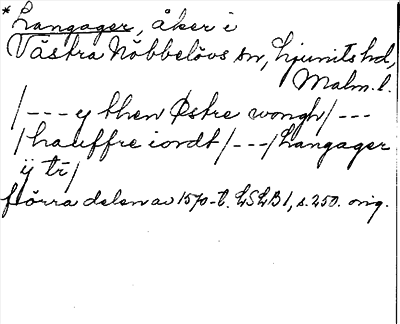 * Langager, åker i
Västra Nöbbelövs sn, Ljunits hd,
Malm. l.
/--- y then Østre wongh/---
/hauffre iordt/---/Langager
ÿ tr/
förra delen av 1570-t. LSLB1, s. 250. orig.